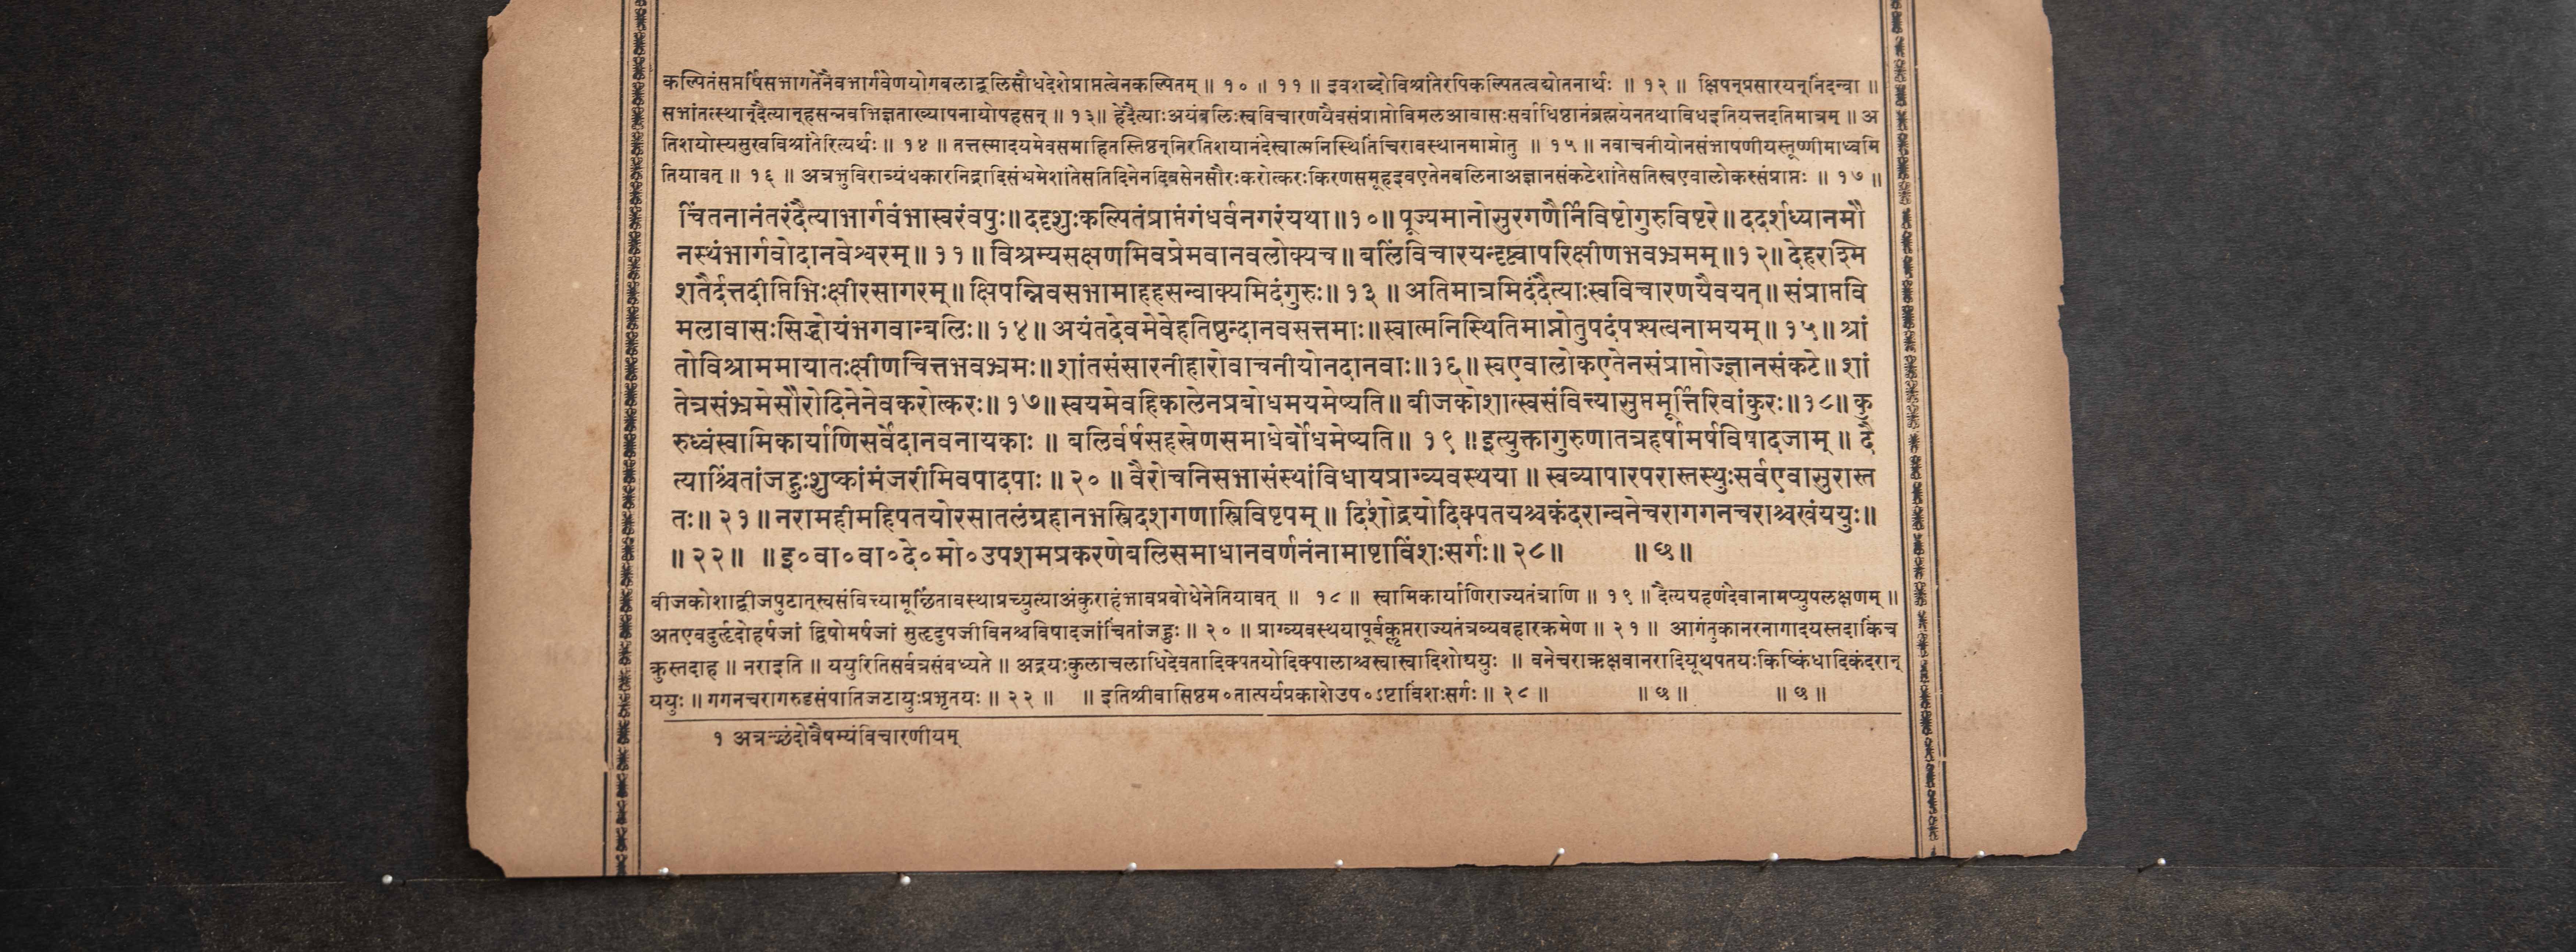 कल्पितंसप्तर्षिसभागतेनैवभार्गवेणयोगबलाद्बलिसौधदेशेप्राप्तत्वेनकल्पितम् ॥ १० ॥ ११ ॥ इवशब्दोविश्रांतेरपिकल्पितत्वद्योतनार्थः ॥ १२ ॥ क्षिपन्प्रसारयन्निदन्वा ॥
सभांतःस्थान्दैत्यान्हसन्नवभिज्ञताख्यापनायोपहसन् ॥ १३॥ हेदैत्याःअयंबलिःस्वविचारणयैवसंप्राप्तोविमलआवासःसर्वाधिष्ठानंब्रह्मयेनतथाविधइतियत्तदतिमात्रम् ॥ अ
तिशयोस्यसुखविश्रांतेरित्यर्थः ॥ १४ ॥ तत्तस्मादयमेवसमाहितस्तिष्ठन्निरतिशयानंदेस्वात्मनिस्थितिंचिरावस्थानमाप्नोतु ॥ १५ ॥ नवाचनीयोनसंभाषणीयस्तूष्णीमाध्वमि
तियावत् ॥ १६ ॥ अत्रभुविरात्र्यंधकारनिद्रादिसंभ्रमेशांतेसतिदिनेनदिवसेनसौरःकरोत्करःकिरणसमूहइवएतेनबलिनाअज्ञानसंकटेशांतेसतिस्वएवालोकस्संप्राप्तः ॥ १७ ॥
चिंतनानंतरंदैत्याभार्गवंभास्वरंवपुः॥ ददृशुःकल्पितंप्राप्तंगंधर्वनगरंयथा॥१०॥ पूज्यमानोसुरगणैर्निविष्टोगुरुविष्टरे॥ ददर्शध्यानमौ
नस्थंभार्गवोदानवेश्वरम्॥ ११॥ विश्रम्यसक्षणमिवप्रेमवानवलोक्यच॥ बलिंविचारयन्दृष्ट्वापरिक्षीणभवभ्रमम्॥१२॥ देहरश्मि
शतैर्दत्तदीप्तिभिःक्षीरसागरम्॥ क्षिपन्निवसभामाहहसन्वाक्यमिदंगुरुः॥ १३ ॥ अतिमात्रमिदंदैत्याःस्वविचारणयैवयत्॥ संप्राप्तवि
मलावासःसिद्धोयंभगवान्बलिः॥ १४॥ अयंतदेवमेवेहतिष्ठन्दानवसत्तमाः॥स्वात्मनिस्थितिमाप्नोतुपदंपश्यत्वनामयम्॥ १५॥ श्रां
तोविश्राममायातःक्षीणचित्तभवभ्रमः॥ शांतसंसारनीहारोवाचनीयोनदानवाः॥१६॥ स्वएवालोकएतेनसंप्राप्तोज्ञानसंकटे॥ शां
तेत्रसंभ्रमेसौरोदिनेनेवकरोत्करः॥ १७॥ स्वयमेवहिकालेनप्रबोधमयमेष्यति॥ बीजकोशात्स्वसंवित्त्यासुप्तमूर्त्तिरिवांकुरः॥१८॥ कु
रुध्वंस्वामिकार्याणिसर्वेदानवनायकाः ॥ बलिर्वर्षसहस्रेणसमाधेर्बोधमेष्यति॥ १९ ॥इत्युक्तागुरुणातत्रहर्षामर्षविषादजाम् ॥ दै
त्याश्चिंतांजहुःशुष्कांमंजरीमिवपादपाः ॥ २० ॥ वैरोचनिसभासंस्थांविधायप्राग्व्यवस्थया ॥ स्वव्यापारपरास्तस्थुःसर्वएवासुरास्त
तः॥ २१ ॥ नरामहीमहिपतयोरसातलंग्रहानभस्त्रिदशगणास्त्रिविष्टपम्॥ दिशोद्रयोदिक्पतयश्चकंदरान्वनेचरागगनचराश्चखंययुः॥
॥ २२॥ ॥ इ०वा०वा०दे०मो०उपशमप्रकरणेबलिसमाधानवर्णनंनामाष्टाविंशःसर्गः॥ २८॥ ॥ छ॥
बीजकोशाद्बीजपुटात्स्वसंवित्त्यामूर्छितावस्थाप्रच्युत्याअंकुराहंभावप्रबोधेनेतियावत् ॥ १८ ॥ स्वामिकार्याणिराज्यतंत्राणि ॥ १९ ॥ दैत्यग्रहणंदेवानामप्युपलक्षणम् ॥
अतएवदुर्हृदोहर्षजां द्विषोमर्षजां सुहृदुपजीविनश्चविषादजांचिंतांजहुः ॥ २० ॥ प्राग्व्यवस्थयापूर्वकॢप्तराज्यतंत्रव्यवहारक्रमेण ॥ २१ ॥ आगंतुकानरनागादयस्तदाकिंच
कुस्तदाह ॥ नराइति ॥ ययुरितिसर्वत्रसंबध्यते ॥ अद्रयःकुलाचलाधिदेवतादिक्पतयोदिक्पालाश्चस्वास्वादिशोययुः ॥ वनेचराऋक्षवानरादियूथपतयःकिष्किंधादिकंदरान्
ययुः ॥ गगनचरागरुडसंपातिजटायुःप्रभृतयः ॥ २२ ॥ ॥ इतिश्रीवासिष्ठम०तात्पर्यप्रकाशेउप०ऽष्टाविंशःसर्गः ॥ २८ ॥ ॥ छ ॥ ॥ छ ॥
१ अत्रच्छंदोवैषम्यंविचारणीयम्